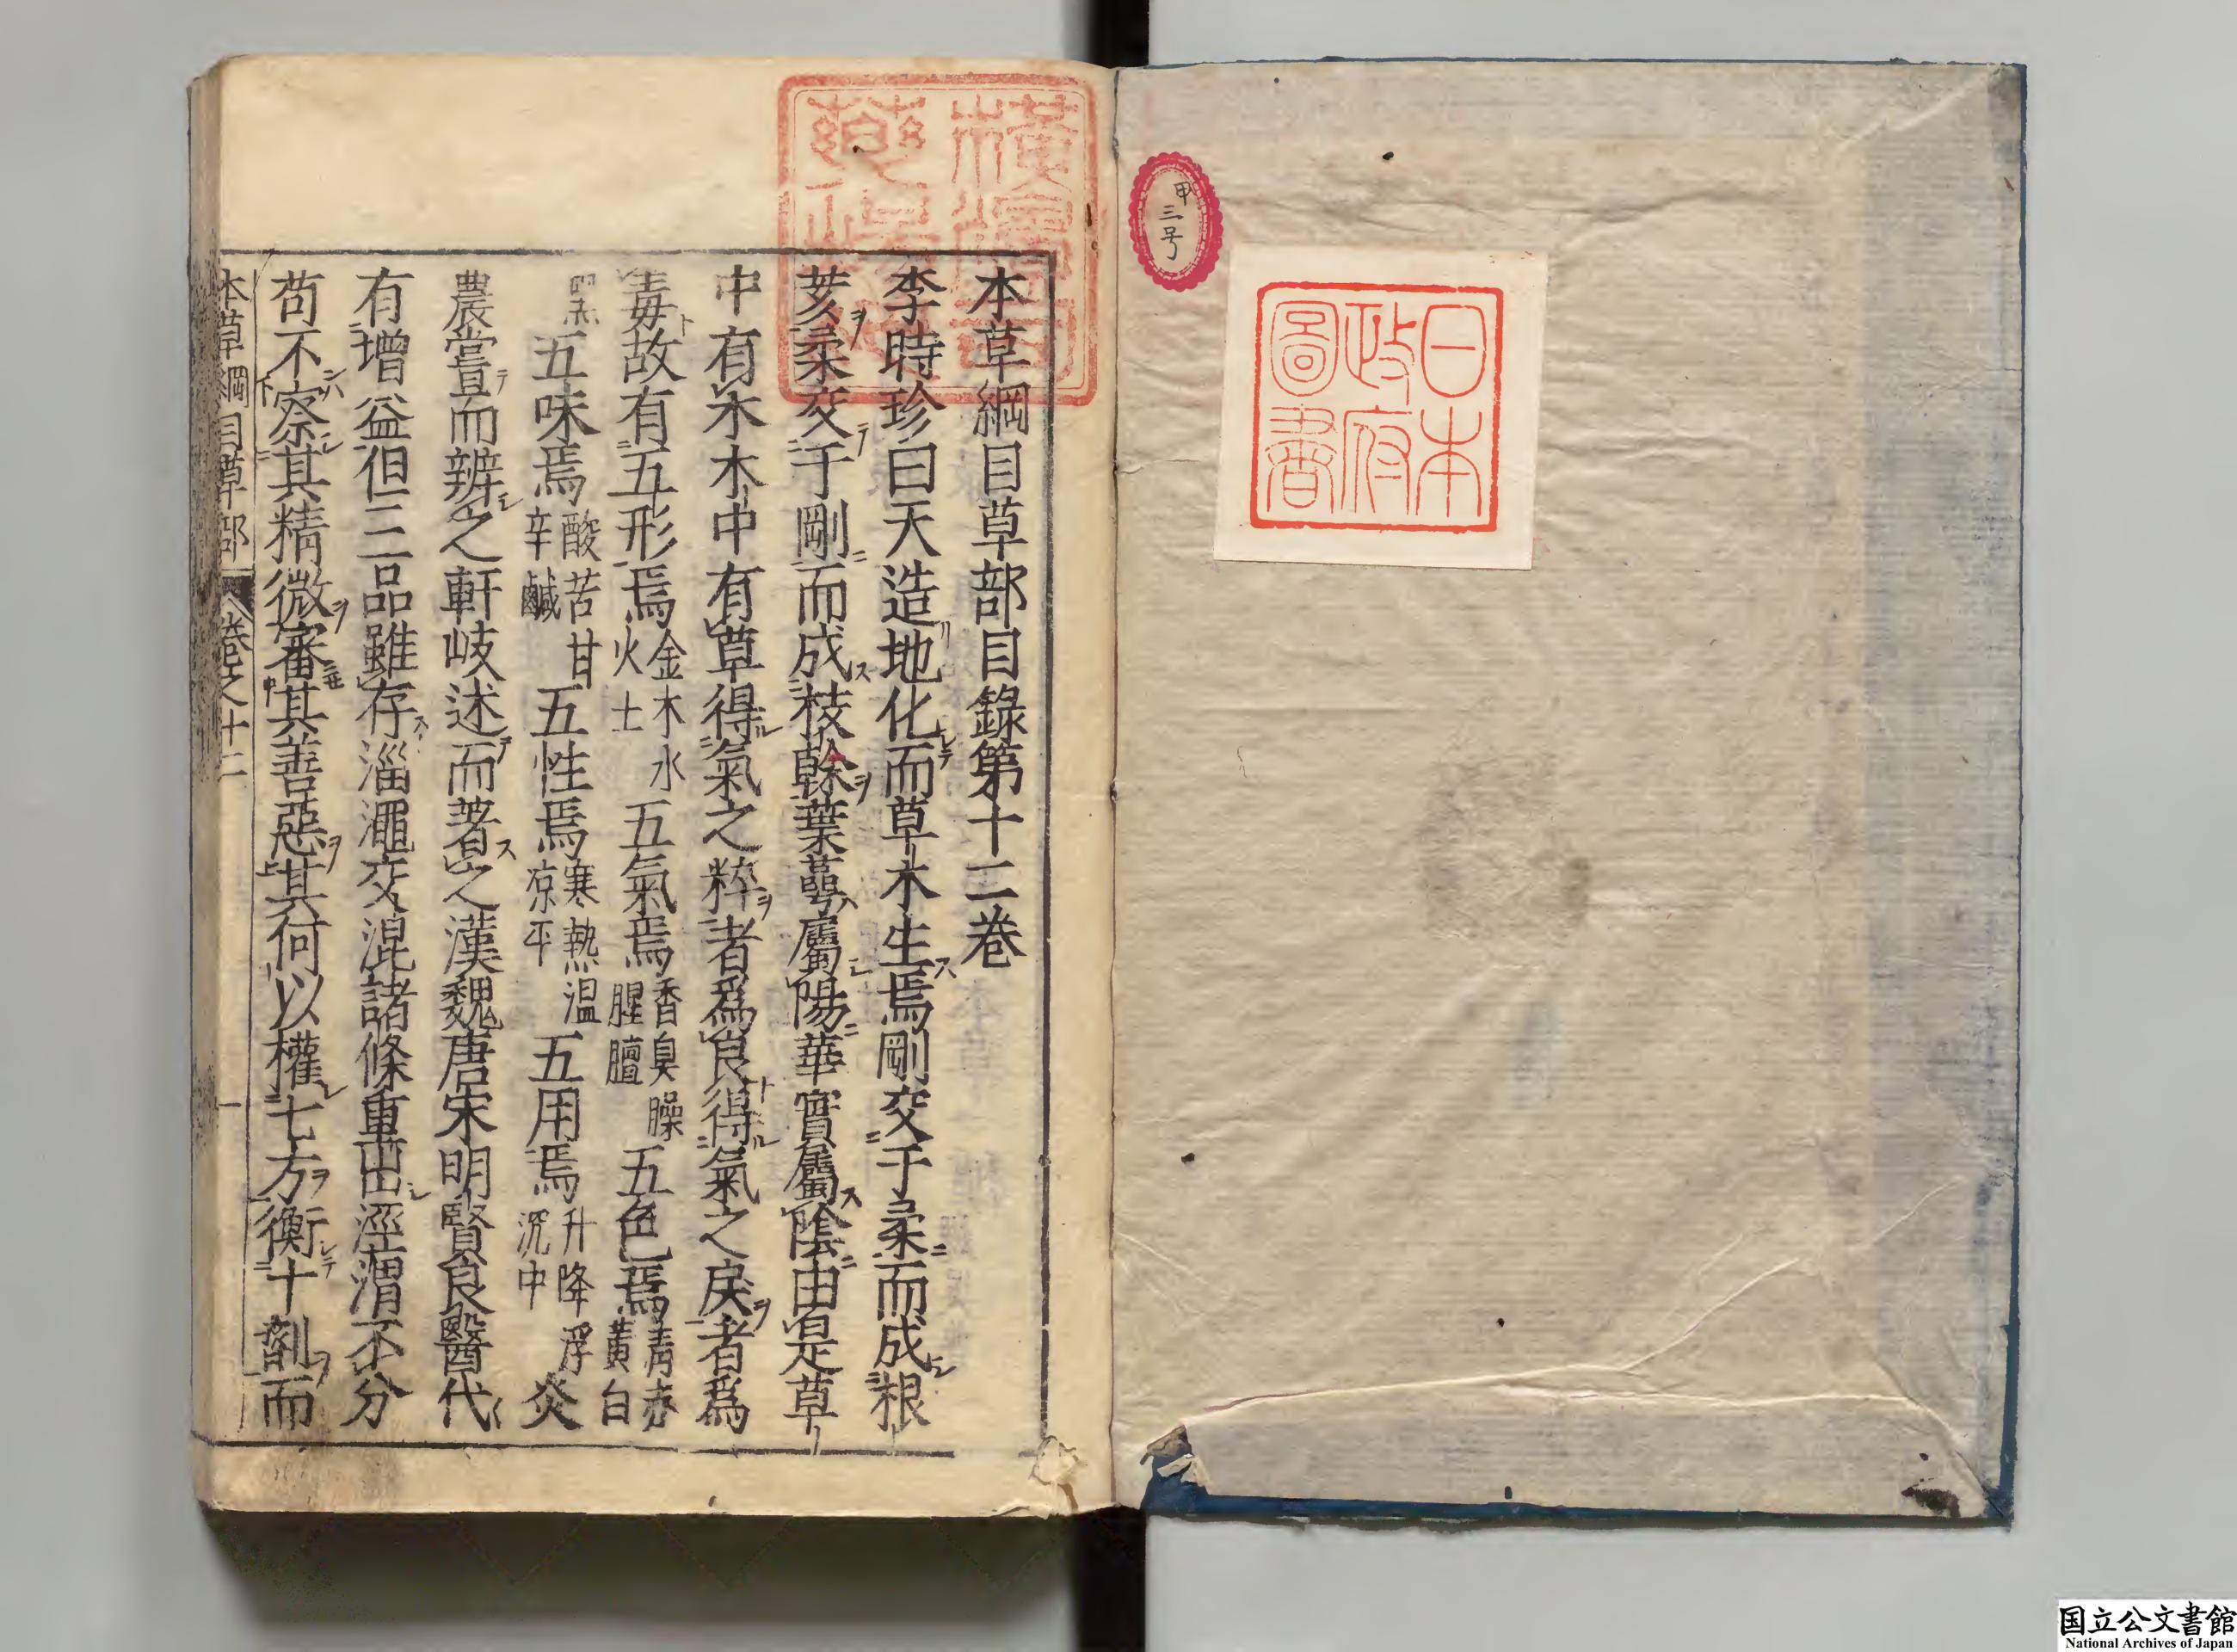 甲
三号
日本
政府
圖書
本草綱目草部目錄第十二卷
李時珍曰天造地化而草木生焉剛交于柔而成根
荄柔交于剛而成枝幹葉萼屬陽華實屬陰由是草
中有木木中有草得氣之粹者爲良得氣之戾者爲
毒故有五形焉金木水火土五氣焉香臭臊腥膻五色焉青赤黃白
黑五味焉酸苦甘辛鹹五性焉寒熱温凉平五用焉升降浮沉中炎
農嘗而辨之軒岐述而著之漢魏唐宋明賢良醫代
有增益但三品雖存淄澠交混諸條重出涇渭不分
苟不察其精微審其善惡其何以權七方衡十劑而
本草綱目草部 卷之十二 一
国立公文書館
National Archives of Japan